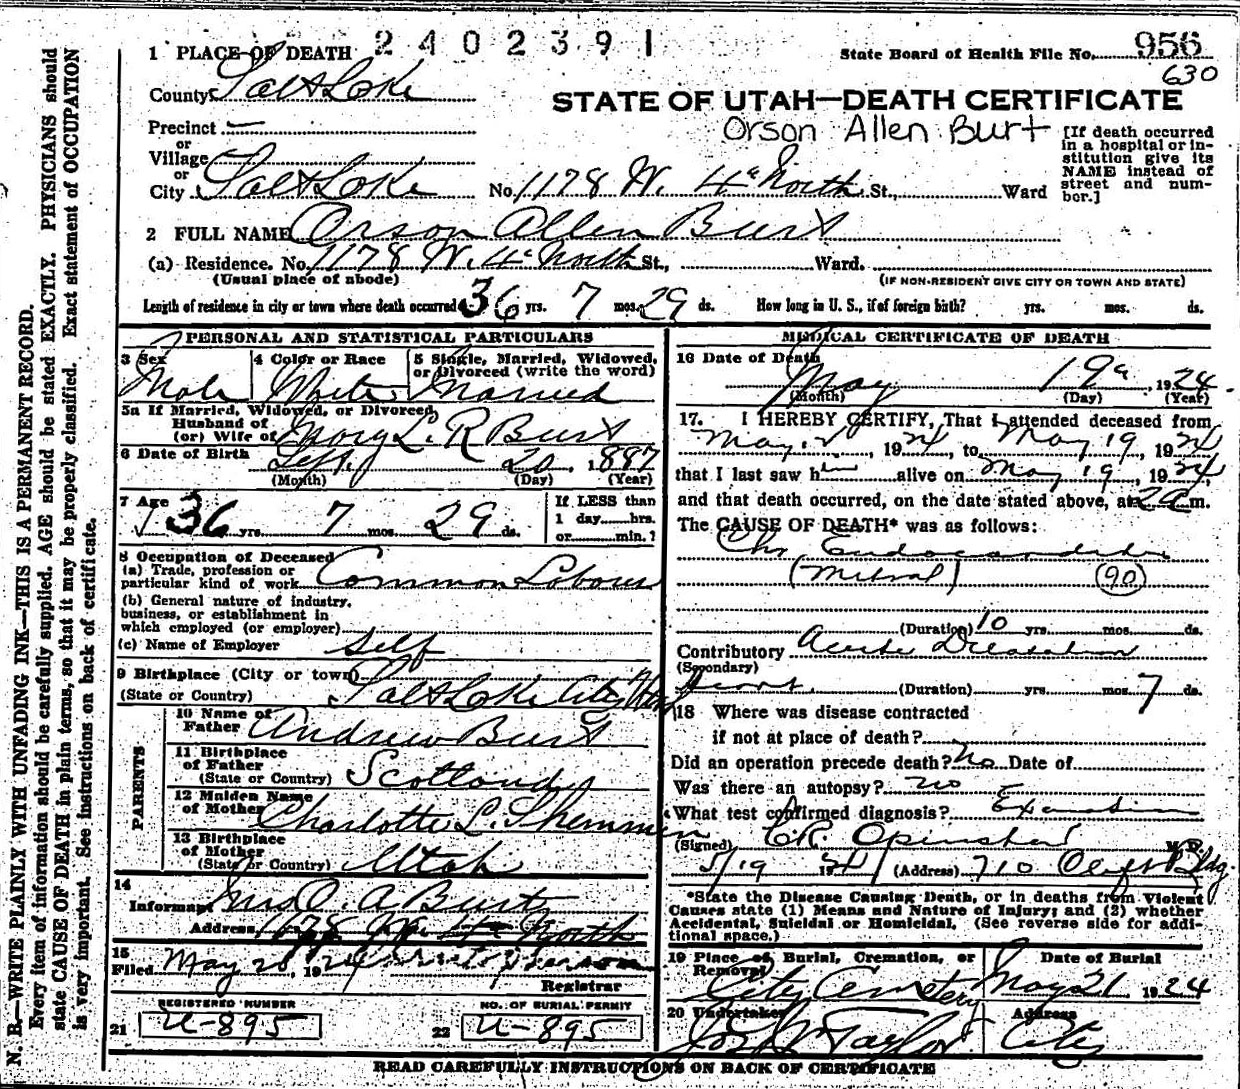 2402391
1 PLACE OF DEATH
State Board of Health File No. 956
630
County Salt Lake
STATE OF UTAH—DEATH CERTIFICATE
Orson Allen Burt
Precinct —
or
Village
or
City Salt Lake No. 1178 W. 4th North St., Ward
[If death occurred
in a hospital or in-
stitution give its
NAME instead of
street and num-
ber.]
2 FULL NAME Orson Allen Burt
(a) Residence. No. 1178 W. 4th North St., Ward.
(Usual place of abode) (IF NON-RESIDENT GIVE CITY OR TOWN AND STATE)
Length of residence in city or town where death occurred 36 yrs. 7 mos. 29 ds. How long in U. S., if of foreign birth? yrs. mos. ds.
PERSONAL AND STATISTICAL PARTICULARS
3 Sex 4 Color or Race 5 Single, Married, Widowed,
or Divorced (write the word)
Male White Married
5a If Married, Widowed, or Divorced
Husband of
(or) Wife of Mary L. R. Burt
6 Date of Birth Sept. 20, 1887
(Month) (Day) (Year)
7 Age 36 yrs. 7 mos. 29 ds.
If LESS than
1 day hrs.
or min.?
8 Occupation of Deceased
(a) Trade, profession or
particular kind of work Common Laborer
(b) General nature of industry,
business, or establishment in
which employed (or employer)
(c) Name of Employer Self
9 Birthplace (City or town)
(State or Country) Salt Lake City Utah
PARENTS
10 Name of
Father Andrew Burt
11 Birthplace
of Father
(State or Country) Scotland
12 Maiden Name
of Mother Charlotte L.
13 Birthplace
of Mother
(State or Country) Utah
14
Informant Mrs O. A. Burt
Address 1178 W 4th North
15
Filed May 20, 1924
Registrar
REGISTERED NUMBER NO. OF BURIAL PERMIT
21 U-895 22 U-895
MEDICAL CERTIFICATE OF DEATH
16 Date of Death
May 19, 1924
(Month) (Day) (Year)
17. I HEREBY CERTIFY, That I attended deceased from
May 2, 1924, to May 19, 1924
that I last saw him alive on May 19, 1924,
and that death occurred, on the date stated above, at 2 a m.
The CAUSE OF DEATH* was as follows:
Chr Endocarditis
(Mitral) (90)
(Duration) 10 yrs. mos. ds.
Contributory Acute Dilatation
(Secondary)
Heart. (Duration) yrs. mos. 7 ds.
18 Where was disease contracted
if not at place of death?
Did an operation precede death? No Date of
Was there an autopsy? no
What test confirmed diagnosis?
(Signed) C R Openshaw M D.
5/19 1924 (Address) 710 Clift Bldg.
*State the Disease Causing Death, or in deaths from Violent
Causes state (1) Means and Nature of Injury; and (2) whether
Accidental, Suicidal or Homicidal. (See reverse side for addi-
tional space.)
19 Place of Burial, Cremation, or
Removal Date of Burial
City Cemetery May 21 1924
20 Undertaker Address
Jos Wm Taylor City
READ CAREFULLY INSTRUCTIONS ON BACK OF CERTIFICATE
N. B.—WRITE PLAINLY WITH UNFADING INK—THIS IS A PERMANENT RECORD.
Every item of information should be carefully supplied. AGE should be stated EXACTLY. PHYSICIANS should
state CAUSE OF DEATH in plain terms, so that it may be properly classified. Exact statement of OCCUPATION
is very important. See instructions on back of certificate.